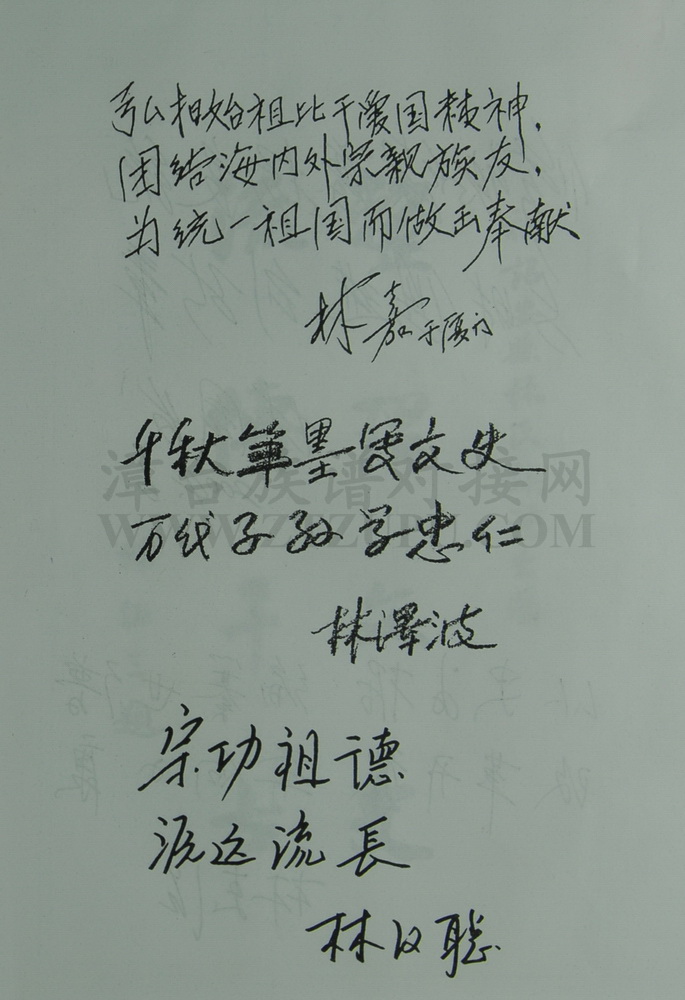 弘扬始祖比干爱国精神，
团结海内外宗亲族友，
为统一祖国而做出奉献
林嘉于厦门
千秋笔墨 文史
漳台族谱对接网
WWW.ZTZUPU.COM
万代子孙学忠仁
林泽波
宗功祖德
源远流長
林 聪